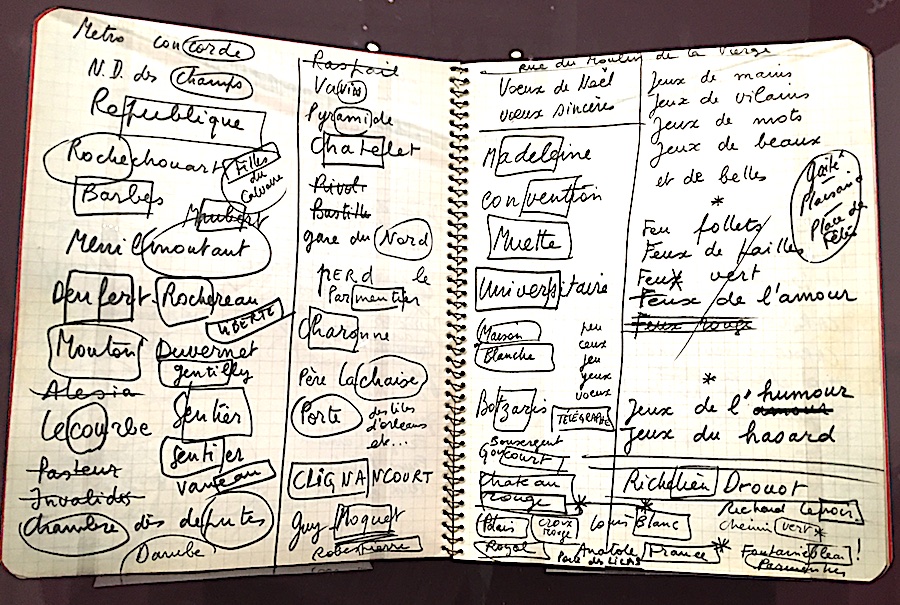 Metro concorde
N.D. des Champs
Republique
Rochechouart
Filles
du
Calvaire
Barbes
Maubert
Menilmontant
Denfert-Rochereau
LIBERTE
Mouton
Duvernet
gentilly
Alesia
Lecourbe
Sentier
Pasteur
Sentier
Invalides
Vaneau
Chambre des députés
Danube
Raspail
Vavin
Pyramide
Chatellet
Rivoli
Bastille
gare du Nord
PERD le
Parmentier
Charonne
Père Lachaise
Porte des lilas
d'orleans
etc...
CLIGNANCOURT
Guy Moquet
Robespierre
rue du Moulin de la Vierge
Vœux de Noël
vœux sincères
Madeleine
Convention
Muette
Universitaire
Maison
Blanche
peu
ceux
jeu
yeux
voeux
Botzaris
TELEGRAPHE
Bonsergent
Goncourt
Chateau
rouge
Palais
Royal
Croix
rouge
Louis Blanc
Anatole France *
Porte des LILAS
Jeux de mains
Jeux de vilains
Jeux de mots
Jeux de beaux
et de belles
Gaité
Plaisance
Place des
Fêtes
*
Feu follets
Feux de pailles
Feux vert
Feux de l'amour
Feux rouge
*
Jeux de l'humour
amour
Jeux du hasard
Richelieu Drouot
Richard Lenoir
chemin vert *
Fontainebleau !
Parmentier